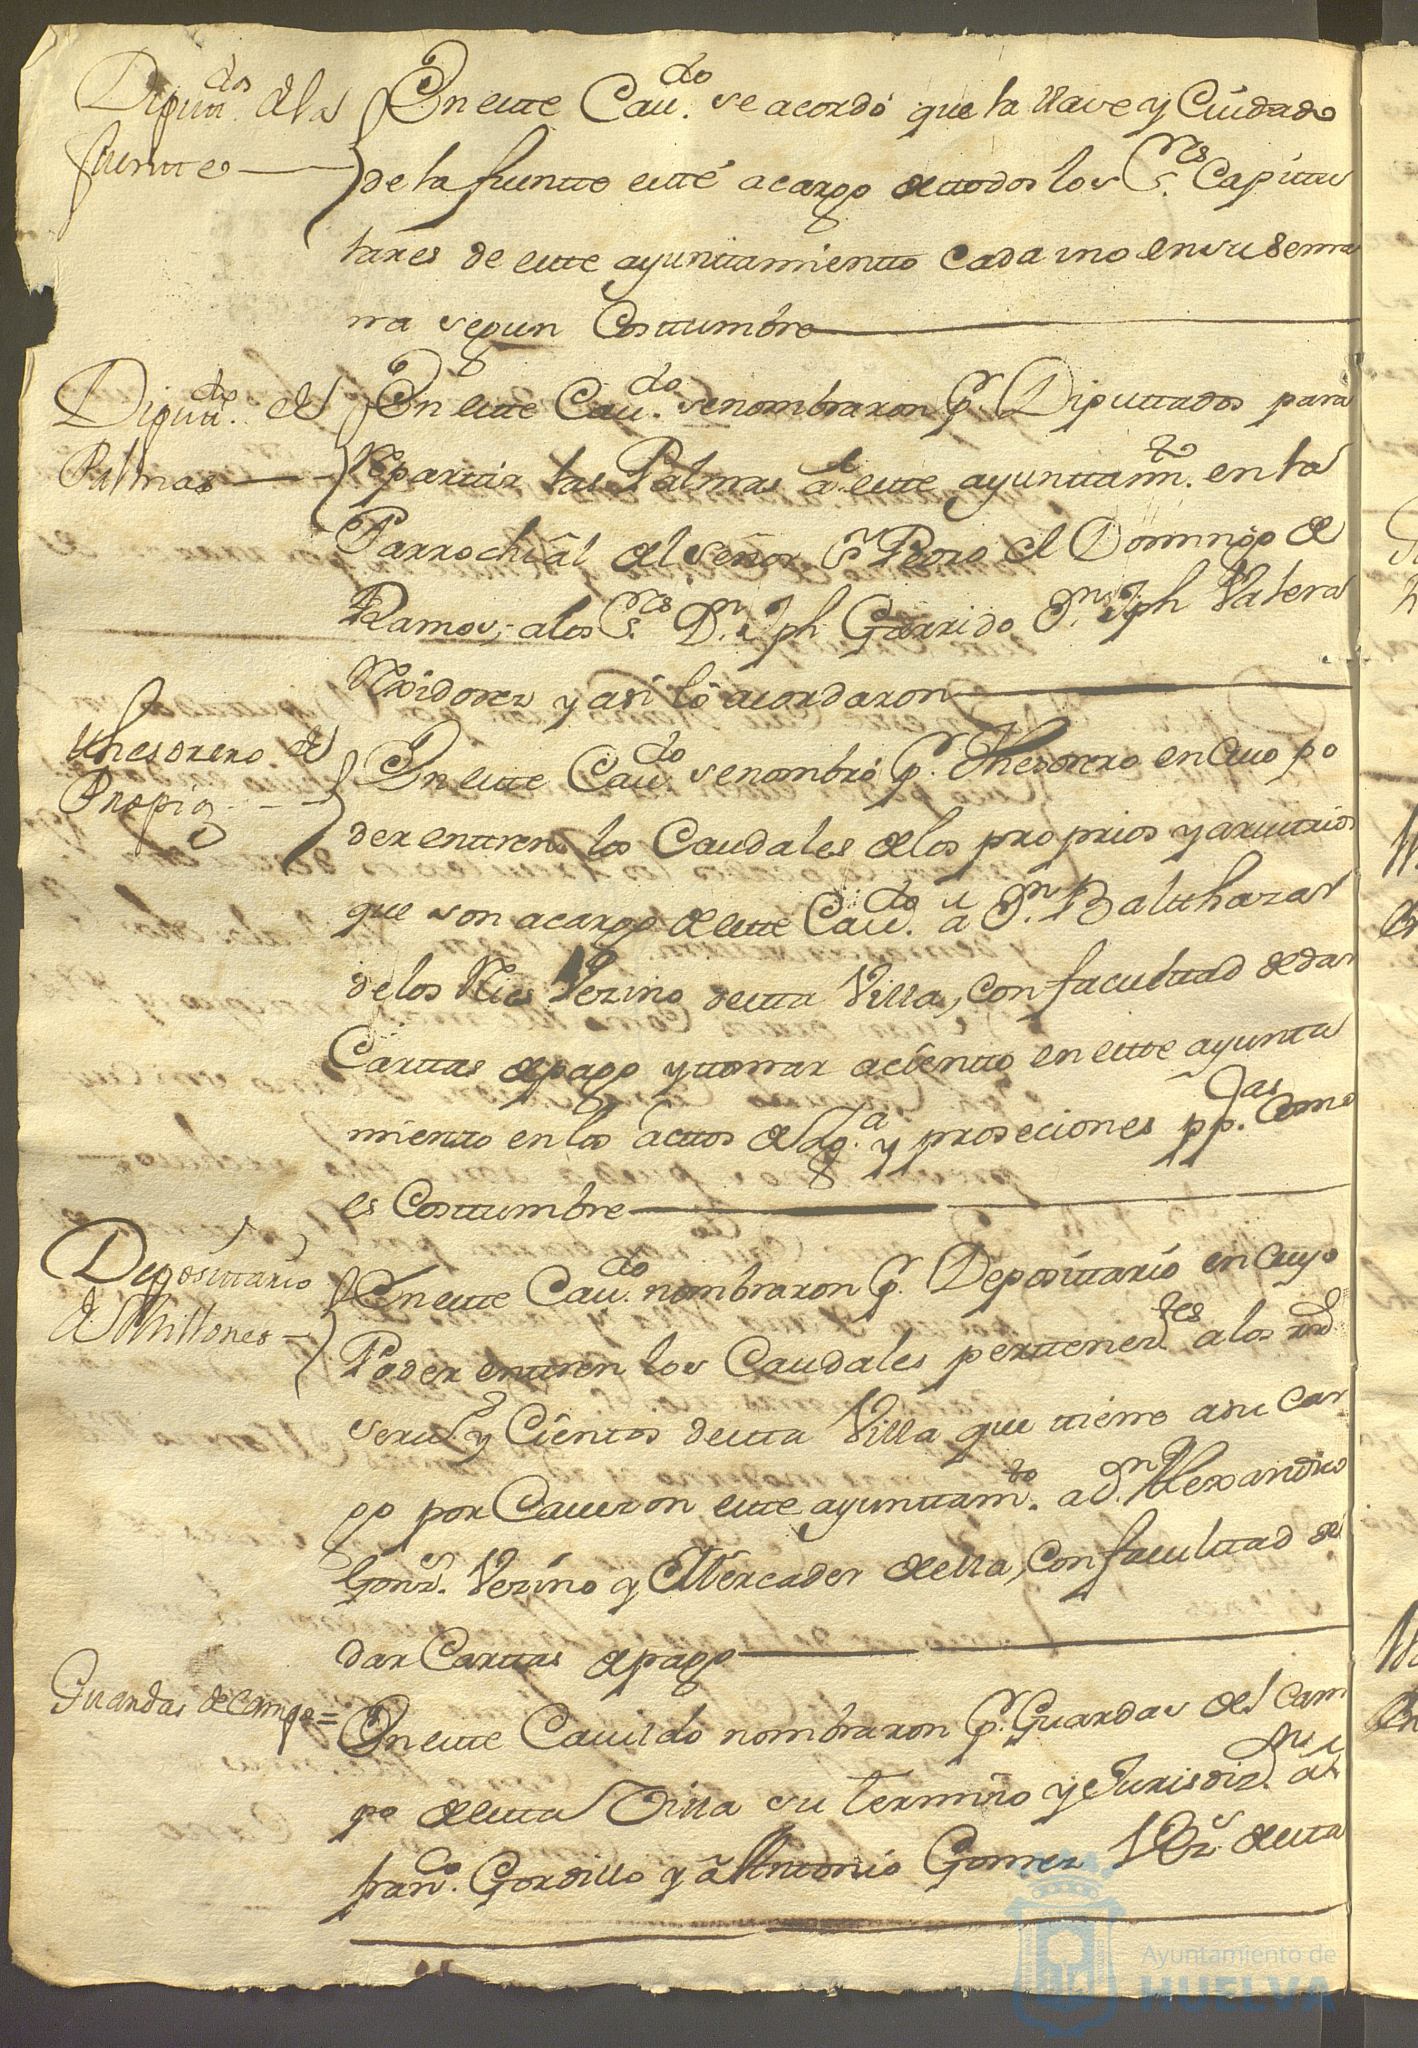 Diputados de la
fuentte
En este Cavdo. se acordó que la llave y Cuidado
de la fuentte este a cargo de ttodos los Sres. Capittu
lares de este ayunttamientto cada uno en su sema
na segun Costtumbre
Diputtdos. de
Palmas
En este Cavdo. se nombraron pr. Diputtados para
Repartir las Palmas a este ayunttamto. en la
Parrochial del Señor Sn Pedro el Domingo de
Ramos, a los Sres. Dn. Jph Garrido Dn. Jph Valera
Rexidores y asi lo acordaron
thesorero de
Propios
En este Cavdo. se nombró pr. Thesorero en Cuio po
der enttren los Caudales de los proprios y arvittrios
que son a cargo de este Cavdo. a Dn. Balthazar
de los Rios Vezino de esta Villa, con faculttad de dar
Carttas de pago y ttomar acientto en este ayuntta
mientto en los acttos de Yga. y proseciones ppcas. Como
es Costtumbre
Deposittario
de Millones
En este Cavdo. nombraron pr. Deposittario en Cuyo
Poder enttren los Caudales perttenezes. a los rrd.
servo. y Cientos de esta Villa que ttiene a su Car
go por Caveson este ayunttamto. a Dn. Alexandro
Gonz. Vezino y Mercader de ella, Con facultad de
dar Carttas de pago
Guardas de Campo =
En este Cavildo nombraron pr. Guardas del Cam
po de esta Villa su termino y Jurisdizn. a
Franco. Gordillo y a Anttonio Gomez Vzs. de esta
Ayuntamiento de
HUELVA